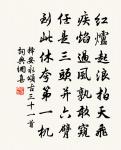 红炉起浪拍天飞
疾焰过风孰敢窥
任是三头并六臂
到此休夸第一机
释安永颂古三十一首
词典网喜